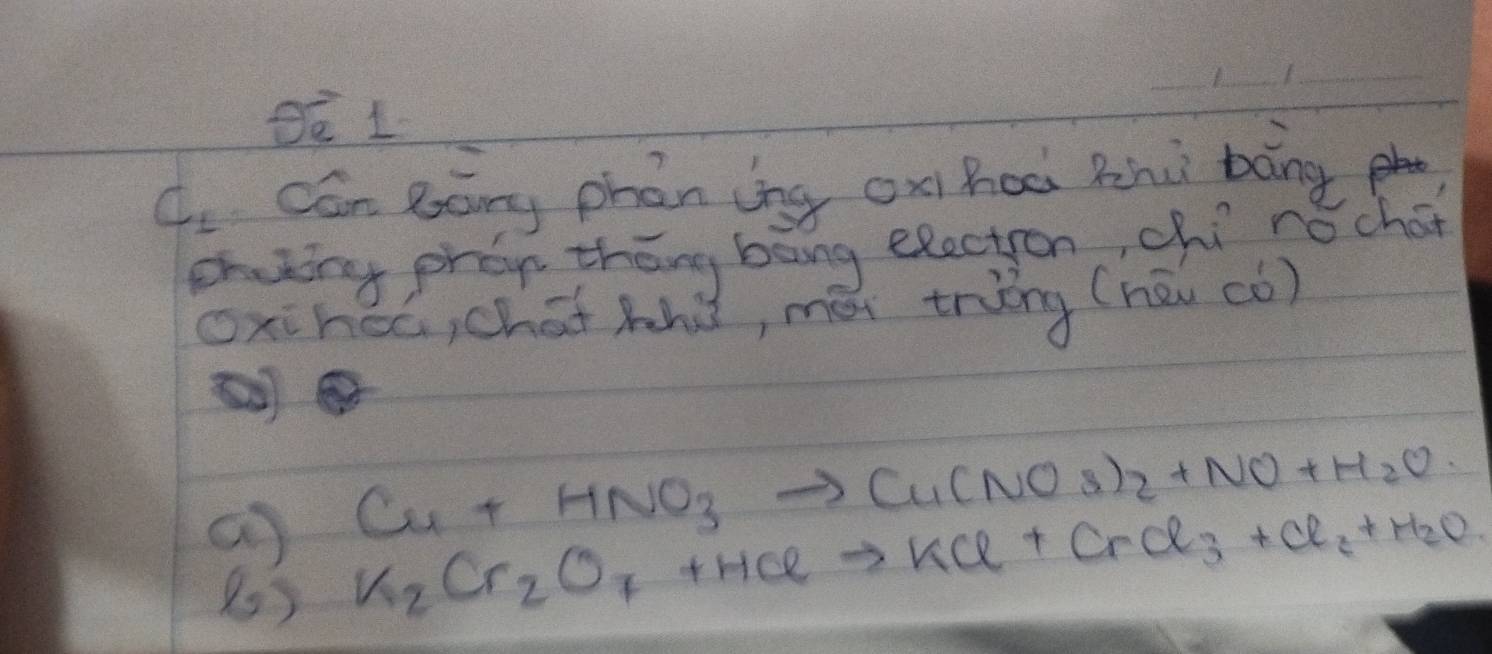 Đề 1
C1. Cân bằng phản ứng oxi hoá khử bằng
phương pháp thăng bằng electron, chỉ rõ chất
oxi hoá, chất khử, môi trường (nếu có)
a)
a) Cu + HNO3 → Cu(NO3)2 + NO + H2O.
b) K2Cr2O7 + HCl → KCl + CrCl3 + Cl2 + H2O.